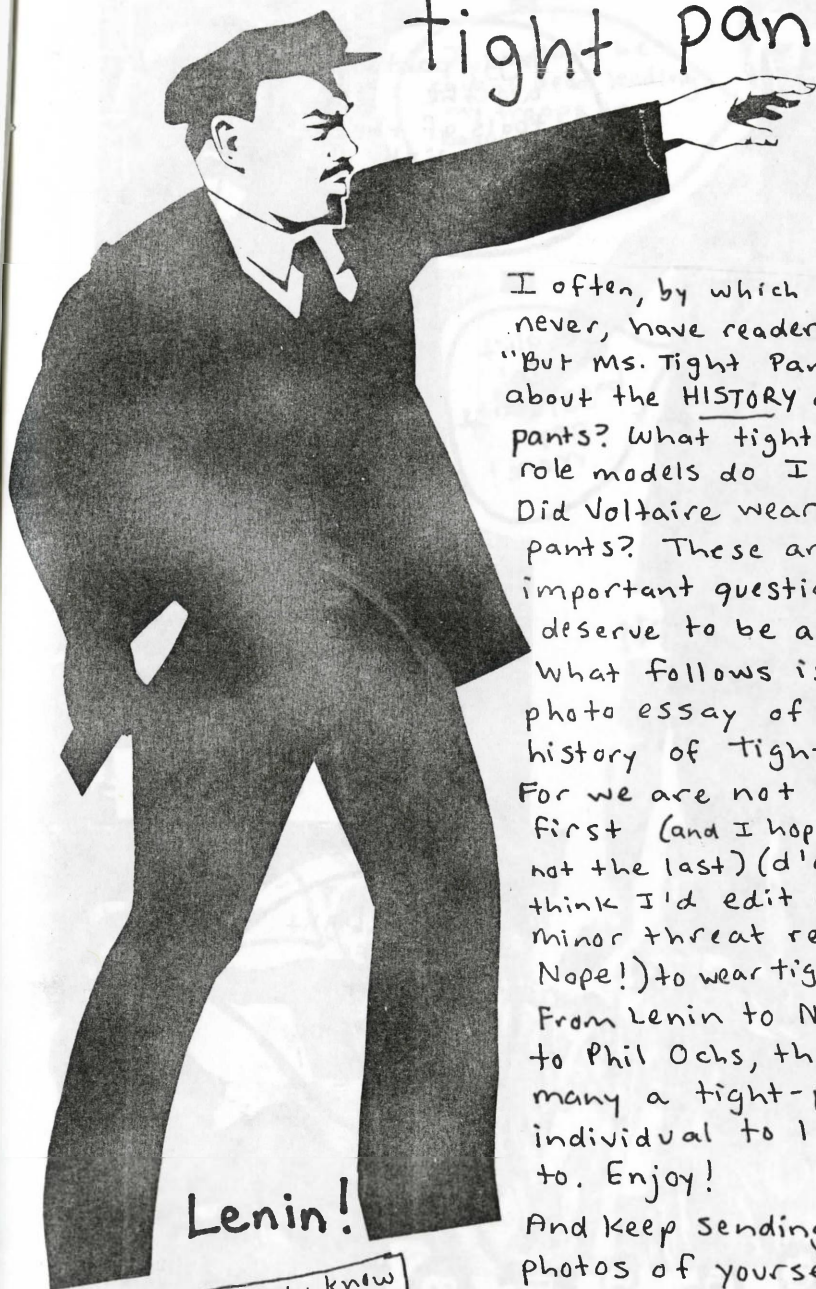 tight pan
I often, by which
never, have reader
"But Ms. Tight Par
about the HISTORY
pants? What tight
role models do I
Did Voltaire wear
pants? These ar
important questi
deserve to be a
What follows is
photo essay of
history of Tight
For we are not
first (and I hop
not the last) (d'
think I'd edit
minor threat re
Nope!) to wear tig
From Lenin to N
to Phil Ochs, th
many a tight-p
individual to l
to. Enjoy!
And keep sending
photos of yourse
Lenin!
know